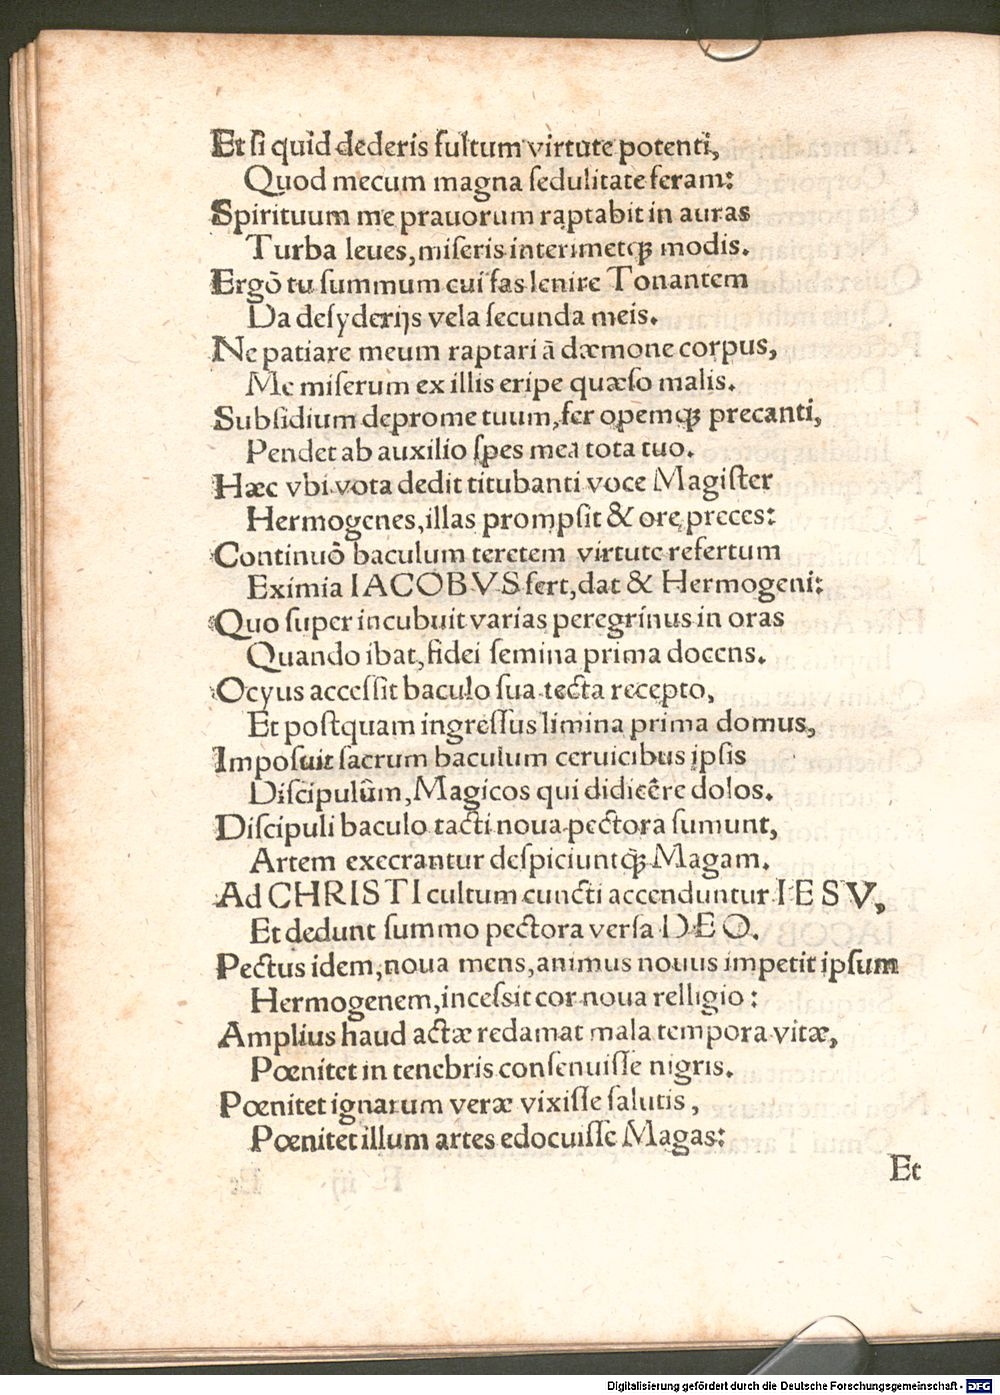 Et si quid dederis fultum virtute potenti,
Quod mecum magna sedulitate feram:
Spirituum me prauorum raptabit in auras
Turba leues, miseris interimetqꝫ modis.
Ergõ tu summum cui fas lenire Tonantem
Da desyderijs vela secunda meis.
Ne patiare meum raptari à dæmone corpus,
Me miserum ex illis eripe quæso malis.
Subsidium deprome tuum, fer opemqꝫ precanti,
Pendet ab auxilio spes mea tota tuo.
Hæc vbi vota dedit titubanti voce Magister
Hermogenes, illas prompsit & ore preces:
Continuò baculum teretem virtute refertum
Eximia IACOBVS fert, dat & Hermogeni:
Quo super incubuit varias peregrinus in oras
Quando ibat, fidei semina prima docens.
Ocyus accessit baculo sua tecta recepto,
Et postquam ingressus limina prima domus,
Imposuit sacrum baculum ceruicibus ipsis
Discipulûm, Magicos qui didicêre dolos.
Discipuli baculo tacti noua pectora sumunt,
Artem execrantur despiciuntqꝫ Magam.
Ad CHRISTI cultum cuncti accenduntur IESV,
Et dedunt summo pectora versa DEO.
Pectus idem, noua mens, animus nouus impetit ipsum
Hermogenem, incessit cor noua relligio:
Amplius haud actæ redamat mala tempora vitæ,
Pœnitet in tenebris consenuisse nigris.
Pœnitet ignarum veræ vixisse salutis,
Pœnitet illum artes edocuisse Magas:
Et
Digitalisierung gefördert durch die Deutsche Forschungsgemeinschaft - DFG